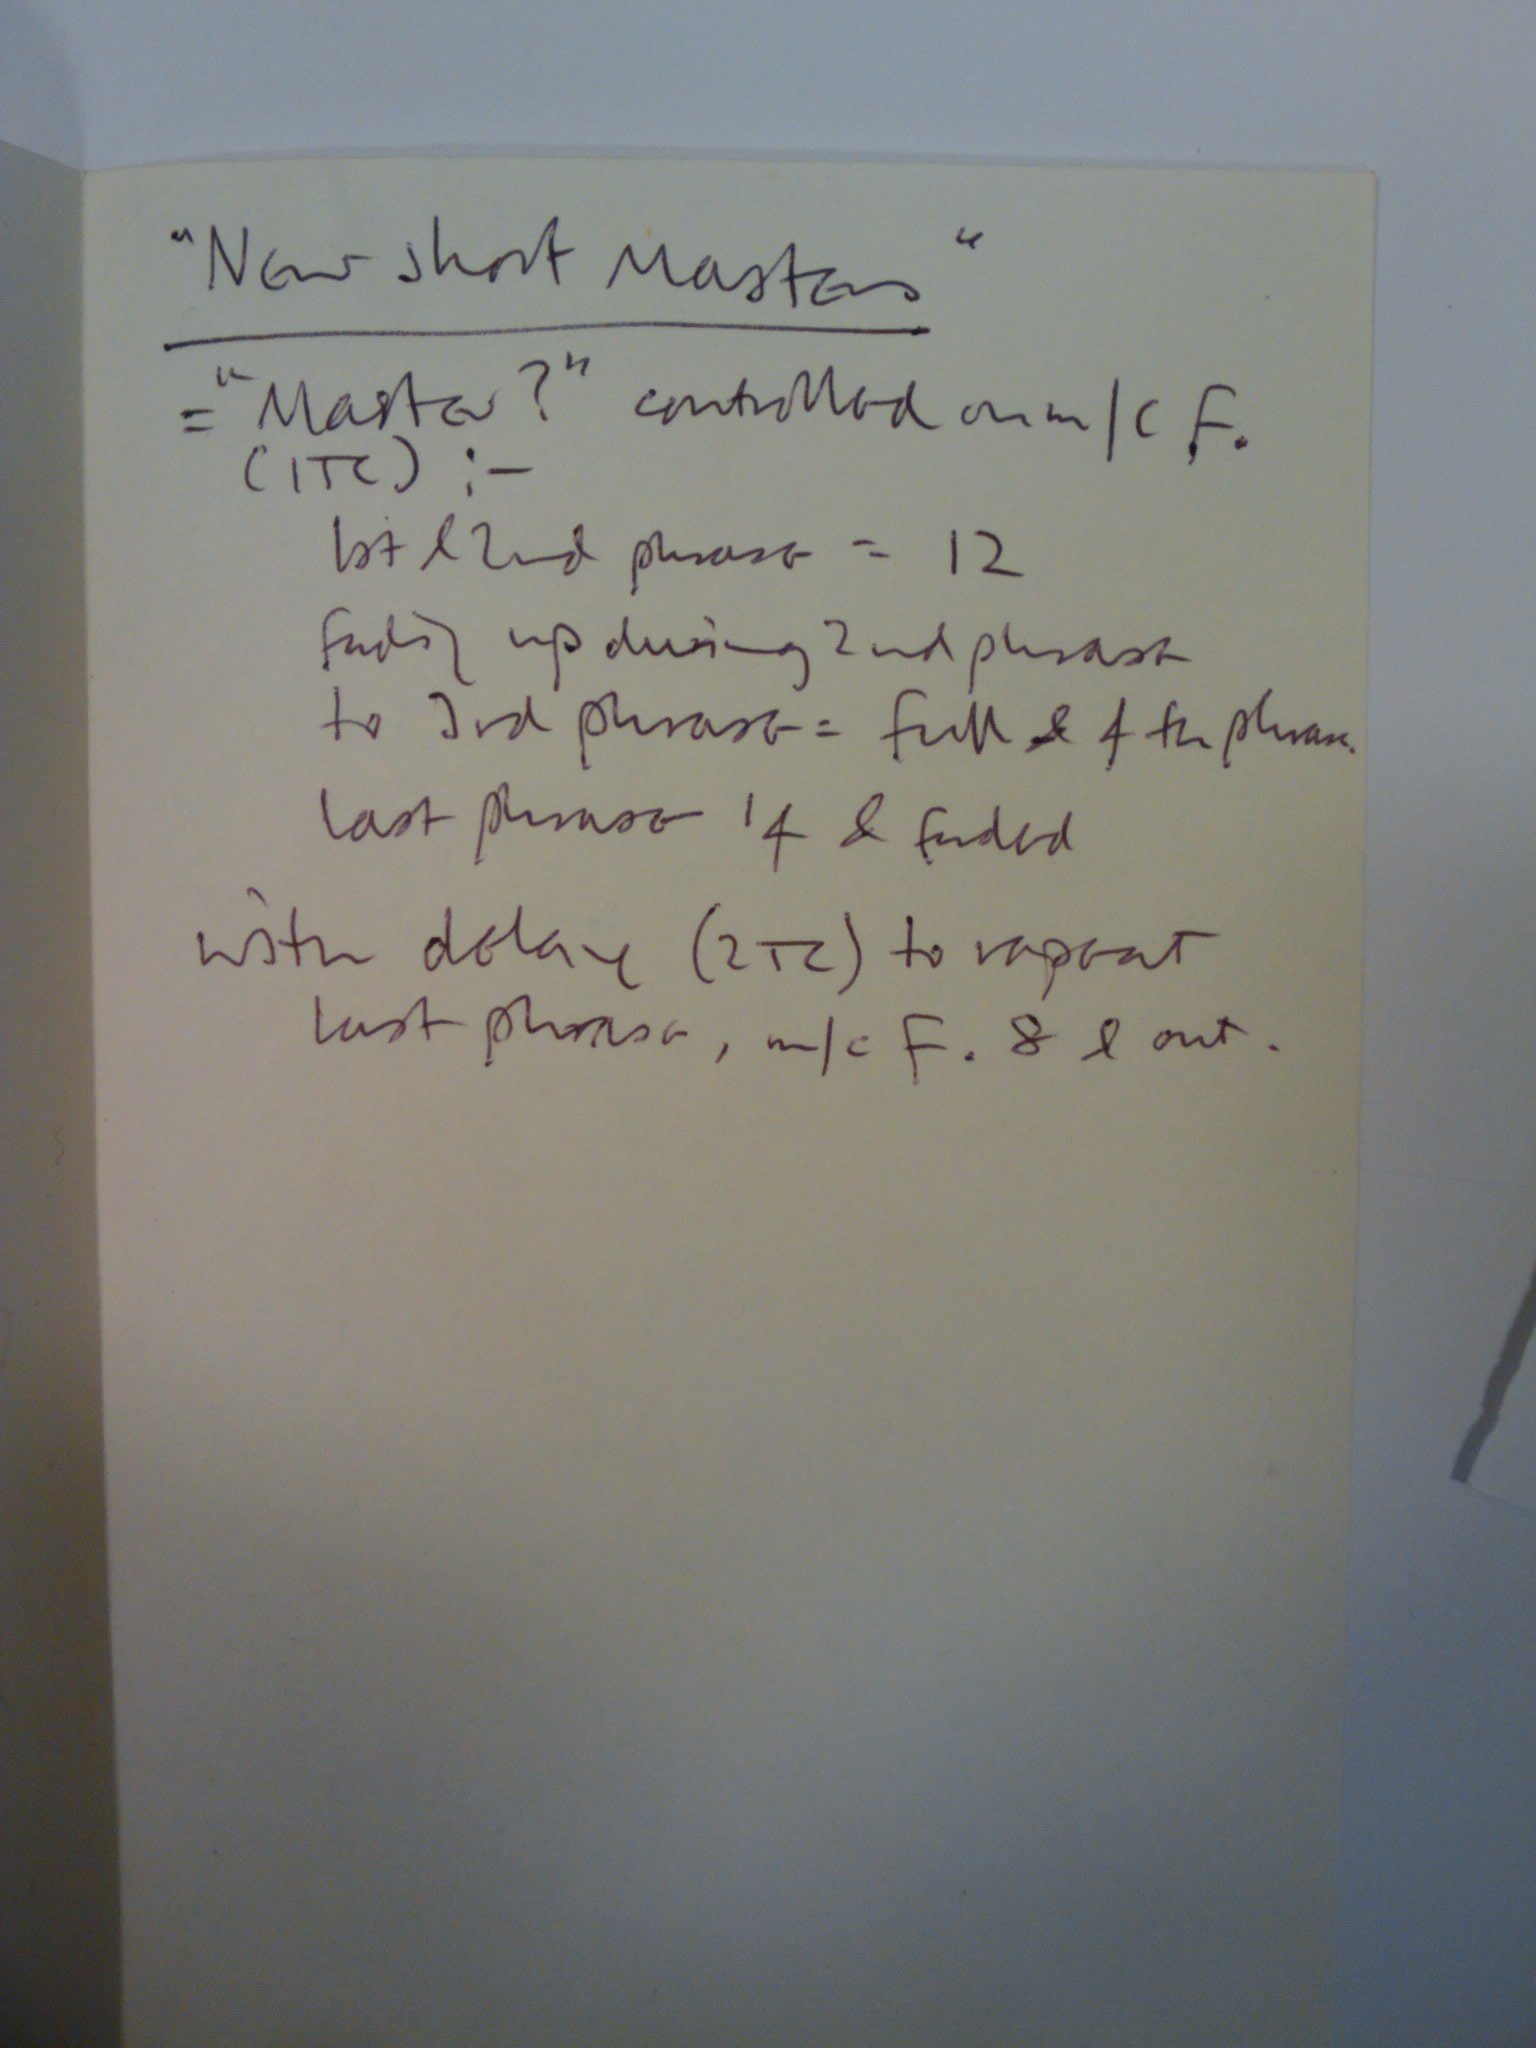 "New short Masters"
= "Master?" controlled on m/c F.
(1TC) :-
1st & 2nd phrase = 12
fading up during 2nd phrase
to 3rd phrase = full & 4th phrase.
last phrase 14 & faded
with delay (2TC) to repeat
last phrase, m/c F. 8 & out.